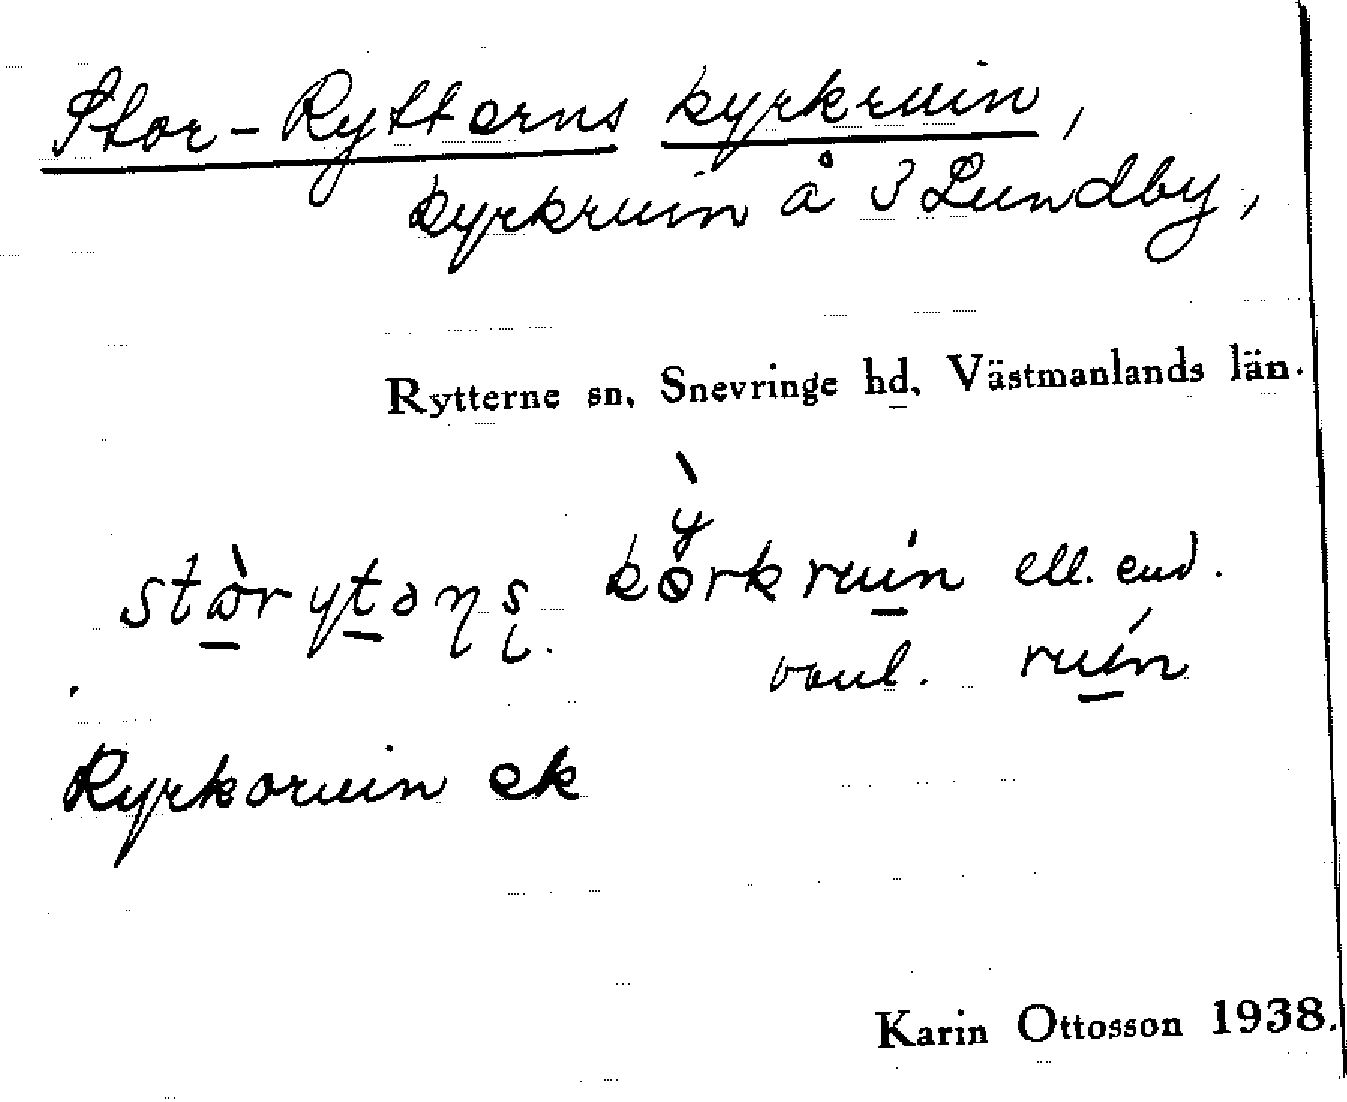 Stor-Rytterns kyrkruin,
kyrkruin å 3 Lundby,
Rytterne sn, Snevringe hd, Västmanlands län.
ell. end.
vanl. ruín
Kyrkoruin ek
Karin Ottosson 1938.